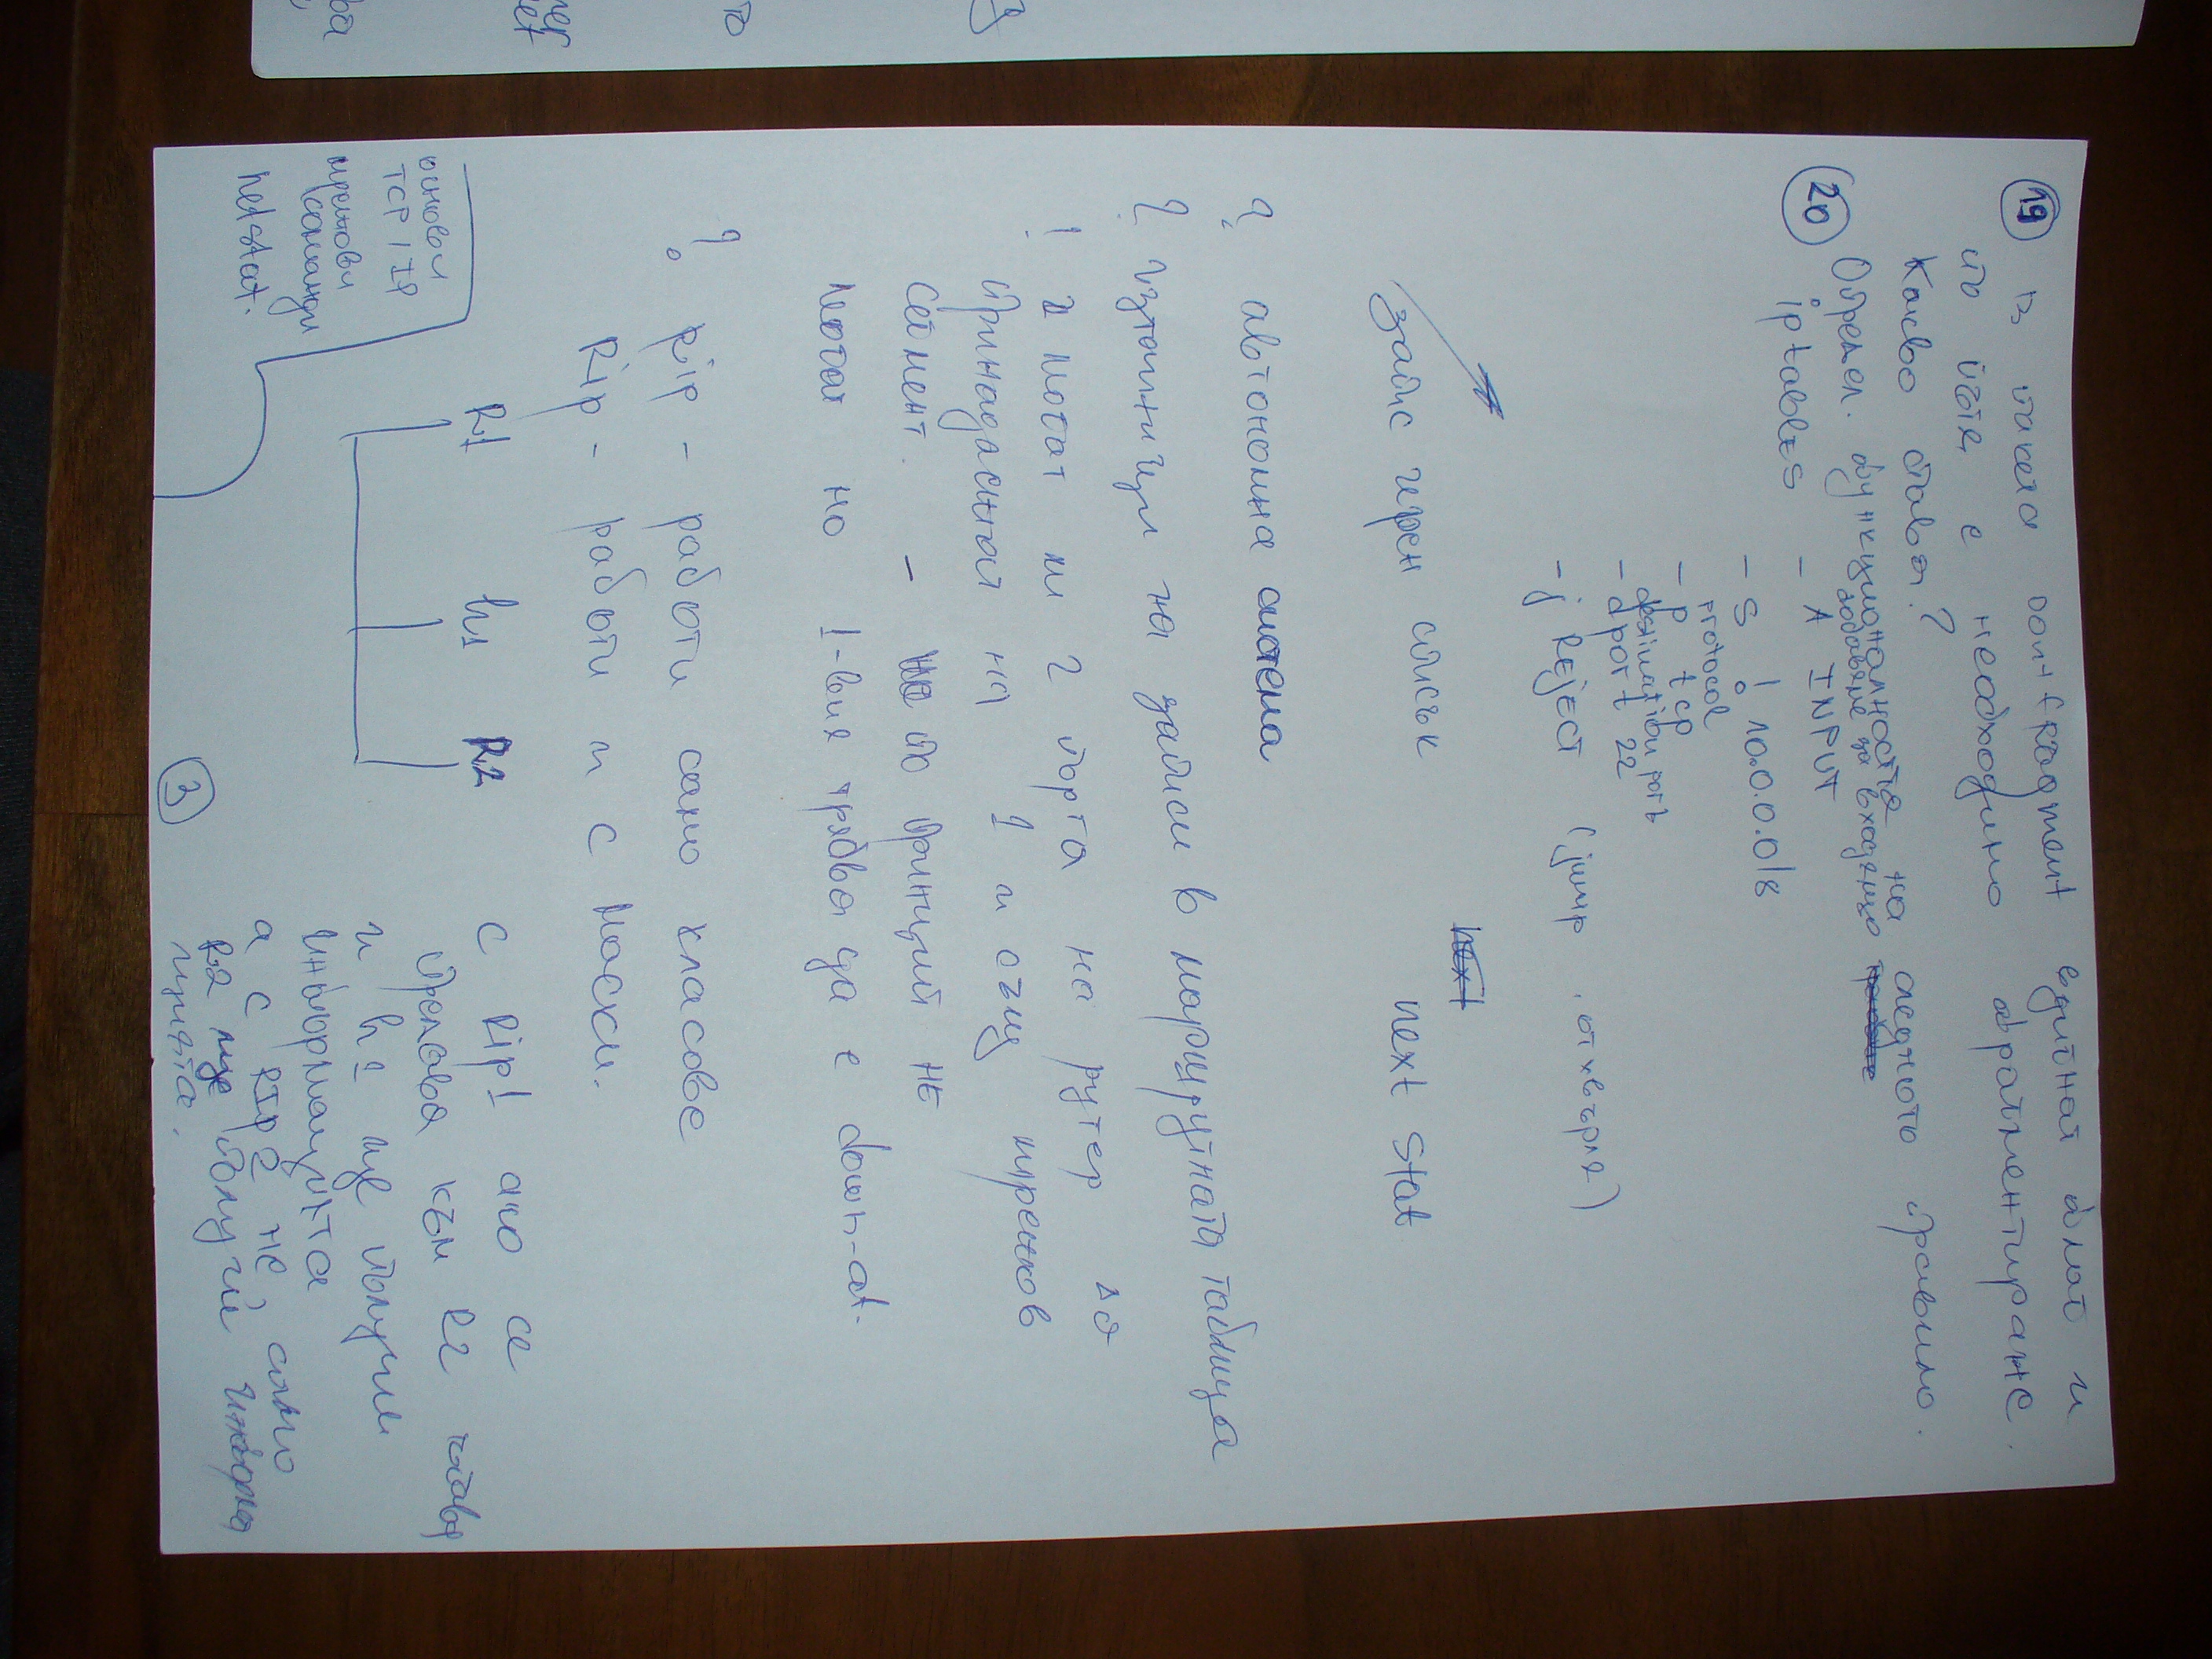 19 В пакета don't fragment вдигнат флаг и
по пътя е необходимо фрагментиране.
Какво става?
20 Определ. функционалността на следното правило.
добавяне за входящо
iptables - A INPUT
- s ! 10.0.0.0/8
protocol
- p tcp
destination port
- dport 22
- j Reject (jump . отхвърля)
next
запис черен списък next stat
? автономна система
? източници на записи в маршрутната таблица
! 2 могат ли 2 порта на рутер да
принадлежат на 1 и същ мрежов
сегмент - по принцип не
могат но 1-вия трябва да е down-at.
? Rip - работи само класове
Rip - работи и с маски.
основни
TCP / IP
мрежови
команди
netstat.
R1 h1 R2
с Rip1 ако се
праща към R2
и h1 ще получи
информацията
а с RIP2 не само
R2 ще получи
3